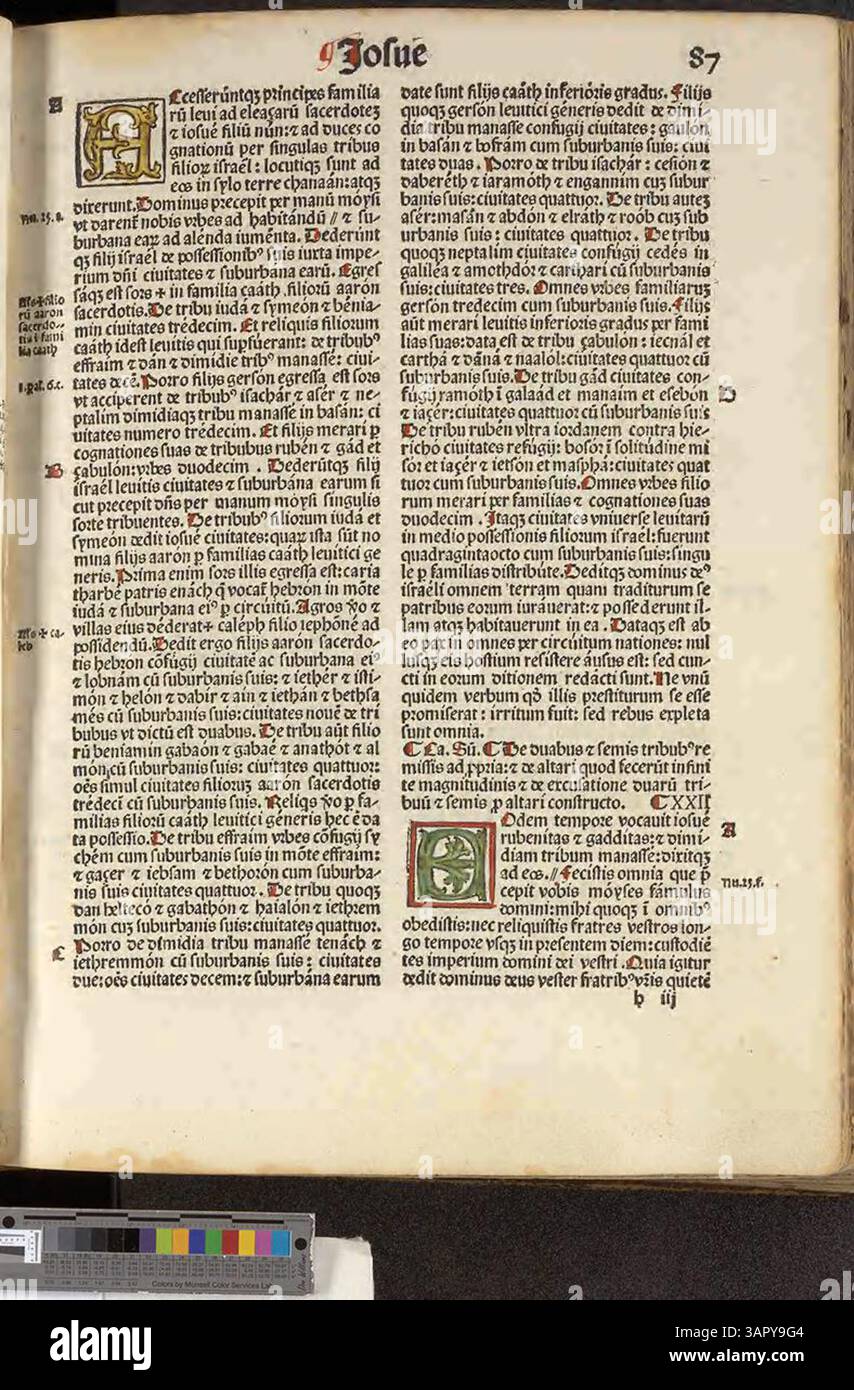 Josue
87
A
Ccesserūntqȝ principes familia
rū leui ad eleaçarū sacerdoteȝ
⁊ iosué filiū nūn:⁊ ad duces co
gnationū per singulas tribus
filioꝝ israél: locutiqȝ sunt ad
eos in sylo terre chanaán:atqȝ
dixerunt.Dominus precepit per manū móysi
vt darent̄ nobis vrbes ad habitándū // ⁊ su-
burbana eaꝝ ad alenda iuménta. Dederūnt
qȝ filij israél de possessionibꝰ suis iuxta impe-
rium dñi ciuitates ⁊ suburbana earū. Egres
sáqȝ est sors + in familia caáth .filiorū aarón
sacerdotis.De tribu iudá ⁊ syméon ⁊ bénia-
min ciuitates trédecim. Et réliquis filiorum
caáth idest leuitis qui supfúerant: de tribubꝰ
effraim ⁊ dan ⁊ dimidie tribꝰ manassé: ciui-
tates decē. Porro filijs gersón egressa est sors
vt acciperent de tribubꝰ isachár ⁊ asér ⁊ ne-
ptalim dimidiaqȝ tribu manasse in basán: ci
uitates numero trédecim. Et filijs merari ꝑ
cognationes suas de tribubus rubén ⁊ gád et
çabulón:vrbes duodecim . Dederūtqȝ filij
israél leuitis ciuitates ⁊ suburbána earum si
cut precepit dñs per manum móysi singulis
sorte tribuentes. De tribubꝰ filiorum iudá et
syméon dedit iosué ciuitates:quaꝝ ista sūt no
mina filijs aarón ꝑ familias caáth leuitici ge
neris.Prima enim sors illis egressa est:caria
tharbé patris enách q̄ vocat̄ hebron in mōte
iudá ⁊ suburbana eiꝰ ꝑ circúitū.Agros ꝟo ⁊
villas eius déderat+ caléph filio iephóné ad
possidendū.Dedit ergo filijs aarón sacerdo-
tis hebron cōfúgij ciuitatē ac suburbana eiꝰ
⁊ lobnám cū suburbanis suis: ⁊ iethér ⁊ isti-
món ⁊ helón ⁊ dabir ⁊ ain ⁊ iethán ⁊ bethsa
més cū suburbanis suis:ciuitates nouē de tri
bubus vt dictū est duabus. De tribu aūt filio
rū beniamin gabaón ⁊ gabaé ⁊ anathót ⁊ al
món:cū suburbanis suis: ciuitates quattuor:
oēs simul ciuitates filiorum aarón sacerdotis
trédecī cū suburbanis suis. Reliqs ꝟo ꝑ fa-
milias filiorū caáth leuitici géneris hec ē da
ta possessio.De tribu effraim vrbes cōfúgij sy
chém cum suburbanis suis in mōte effraim:
⁊ gaçer ⁊ iebsam ⁊ bethorón cum suburba-
nis suis ciuitates quattuor. De tribu quoqȝ
dan heltecó ⁊ gabathón ⁊ haialón ⁊ iethrem
món cuȝ suburbanis suis:ciuitates quattuor.
Porro de dimidia tribu manassé tenách ⁊
iethremmón cū suburbanis suis: ciuitates
due:oēs ciuitates decem:⁊ suburbána earum
Nu. 35. a.
sacerdo-
1.pal. 6.c.
B
C
date sunt filijs caáth inferióris gradus. Filijs
quoqȝ gersón leuitici géneris dedit de dimi-
dia tribu manasse confugij ciuitates: gaulón
in basán ⁊ bosrám cum suburbanis suis: ciui
tates duas. Porro de tribu isachár: cesión ⁊
daberéth ⁊ iaramóth ⁊ engannim cuȝ subur
banis suis:ciuitates quattuor. De tribu auteȝ
asér:masán ⁊ abdón ⁊ elráth ⁊ roób cuȝ sub
urbanis suis: ciuitates quattuor. De tribu
quoqȝ neptalim ciuitates confúgij cedés in
galiléa ⁊ amothdór ⁊ carthan cū suburbanis
suis:ciuitates tres. Omnes vrbes familiaruȝ
gersón tredecim cum suburbanis suis.Filijs
aūt merari leuitis inferioris gradus per fami
lias suas:data est de tribu çabulón: iecnál et
carthá ⁊ dāná ⁊ naalól:ciuitates quattuor cū
suburbanis suis.De tribu gád ciuitates con-
fúgij ramóth ī galaád et manaim et esebón
⁊ iaçér:ciuitates quattuor cū suburbanis suis
De tribu rubén vltra iordanem contra hie-
richó ciuitates refúgij: bosór ī solitúdine mi
sór et iaçér ⁊ ietsón et masphá:ciuitates quat
tuor cum suburbanis suis.Omnes vrbes filio
rum merari per familias ⁊ cognationes suas
duodecim . Itaqȝ ciuitates vniuerse leuitarū
in medio possessionis filiorum israél:fuerunt
quadragintaocto cum suburbanis suis:singu
le ꝑ familias distribúte.Deditqȝ dominus deꝰ
israéli omnem terram quam traditurum se
patribus eorum iuráuerat:⁊ possederunt il-
lam atqȝ habitauerunt in ea . Dataqȝ est ab
eo pax in omnes per circúitum nationes: nul
lusqȝ eis hostium resistere áusus est: sed cun-
cti in eorum ditionem redácti sunt.Ne vnū
quidem verbum qđ illis prestiturum se esse
promiserat: irritum fuit: sed rebus expleta
sunt omnia.
Ca. Sū. De duabus ⁊ semis tribubꝰ re
missis ad ꝓpria:⁊ de altari quod fecerūt infini
te magnitudinis ⁊ de excusatione duarū tri-
buū ⁊ semis ꝓ altari constructo. XXII
EOdem tempore vocauit iosué
rubenitas ⁊ gadditas:⁊ dimi-
diam tribum manassé:dixitqȝ
ad eos.//Fecistis omnia que p̄
cepit vobis móyses fámulus
domini:mihi quoqȝ ī omnibꝰ
obedistis:nec reliquistis fratres vestros lon-
go tempore vsqȝ in presentem diem:custodiē
tes imperium domini dei vestri .Quia igitur
dedit dominus deus vester fratribꝰ vr̄is quietē
D
A
Nu.23.f.
h iij
Colors by Munsell Color Services Lab
alamy
Image ID: 3APY9G4
www.alamy.com